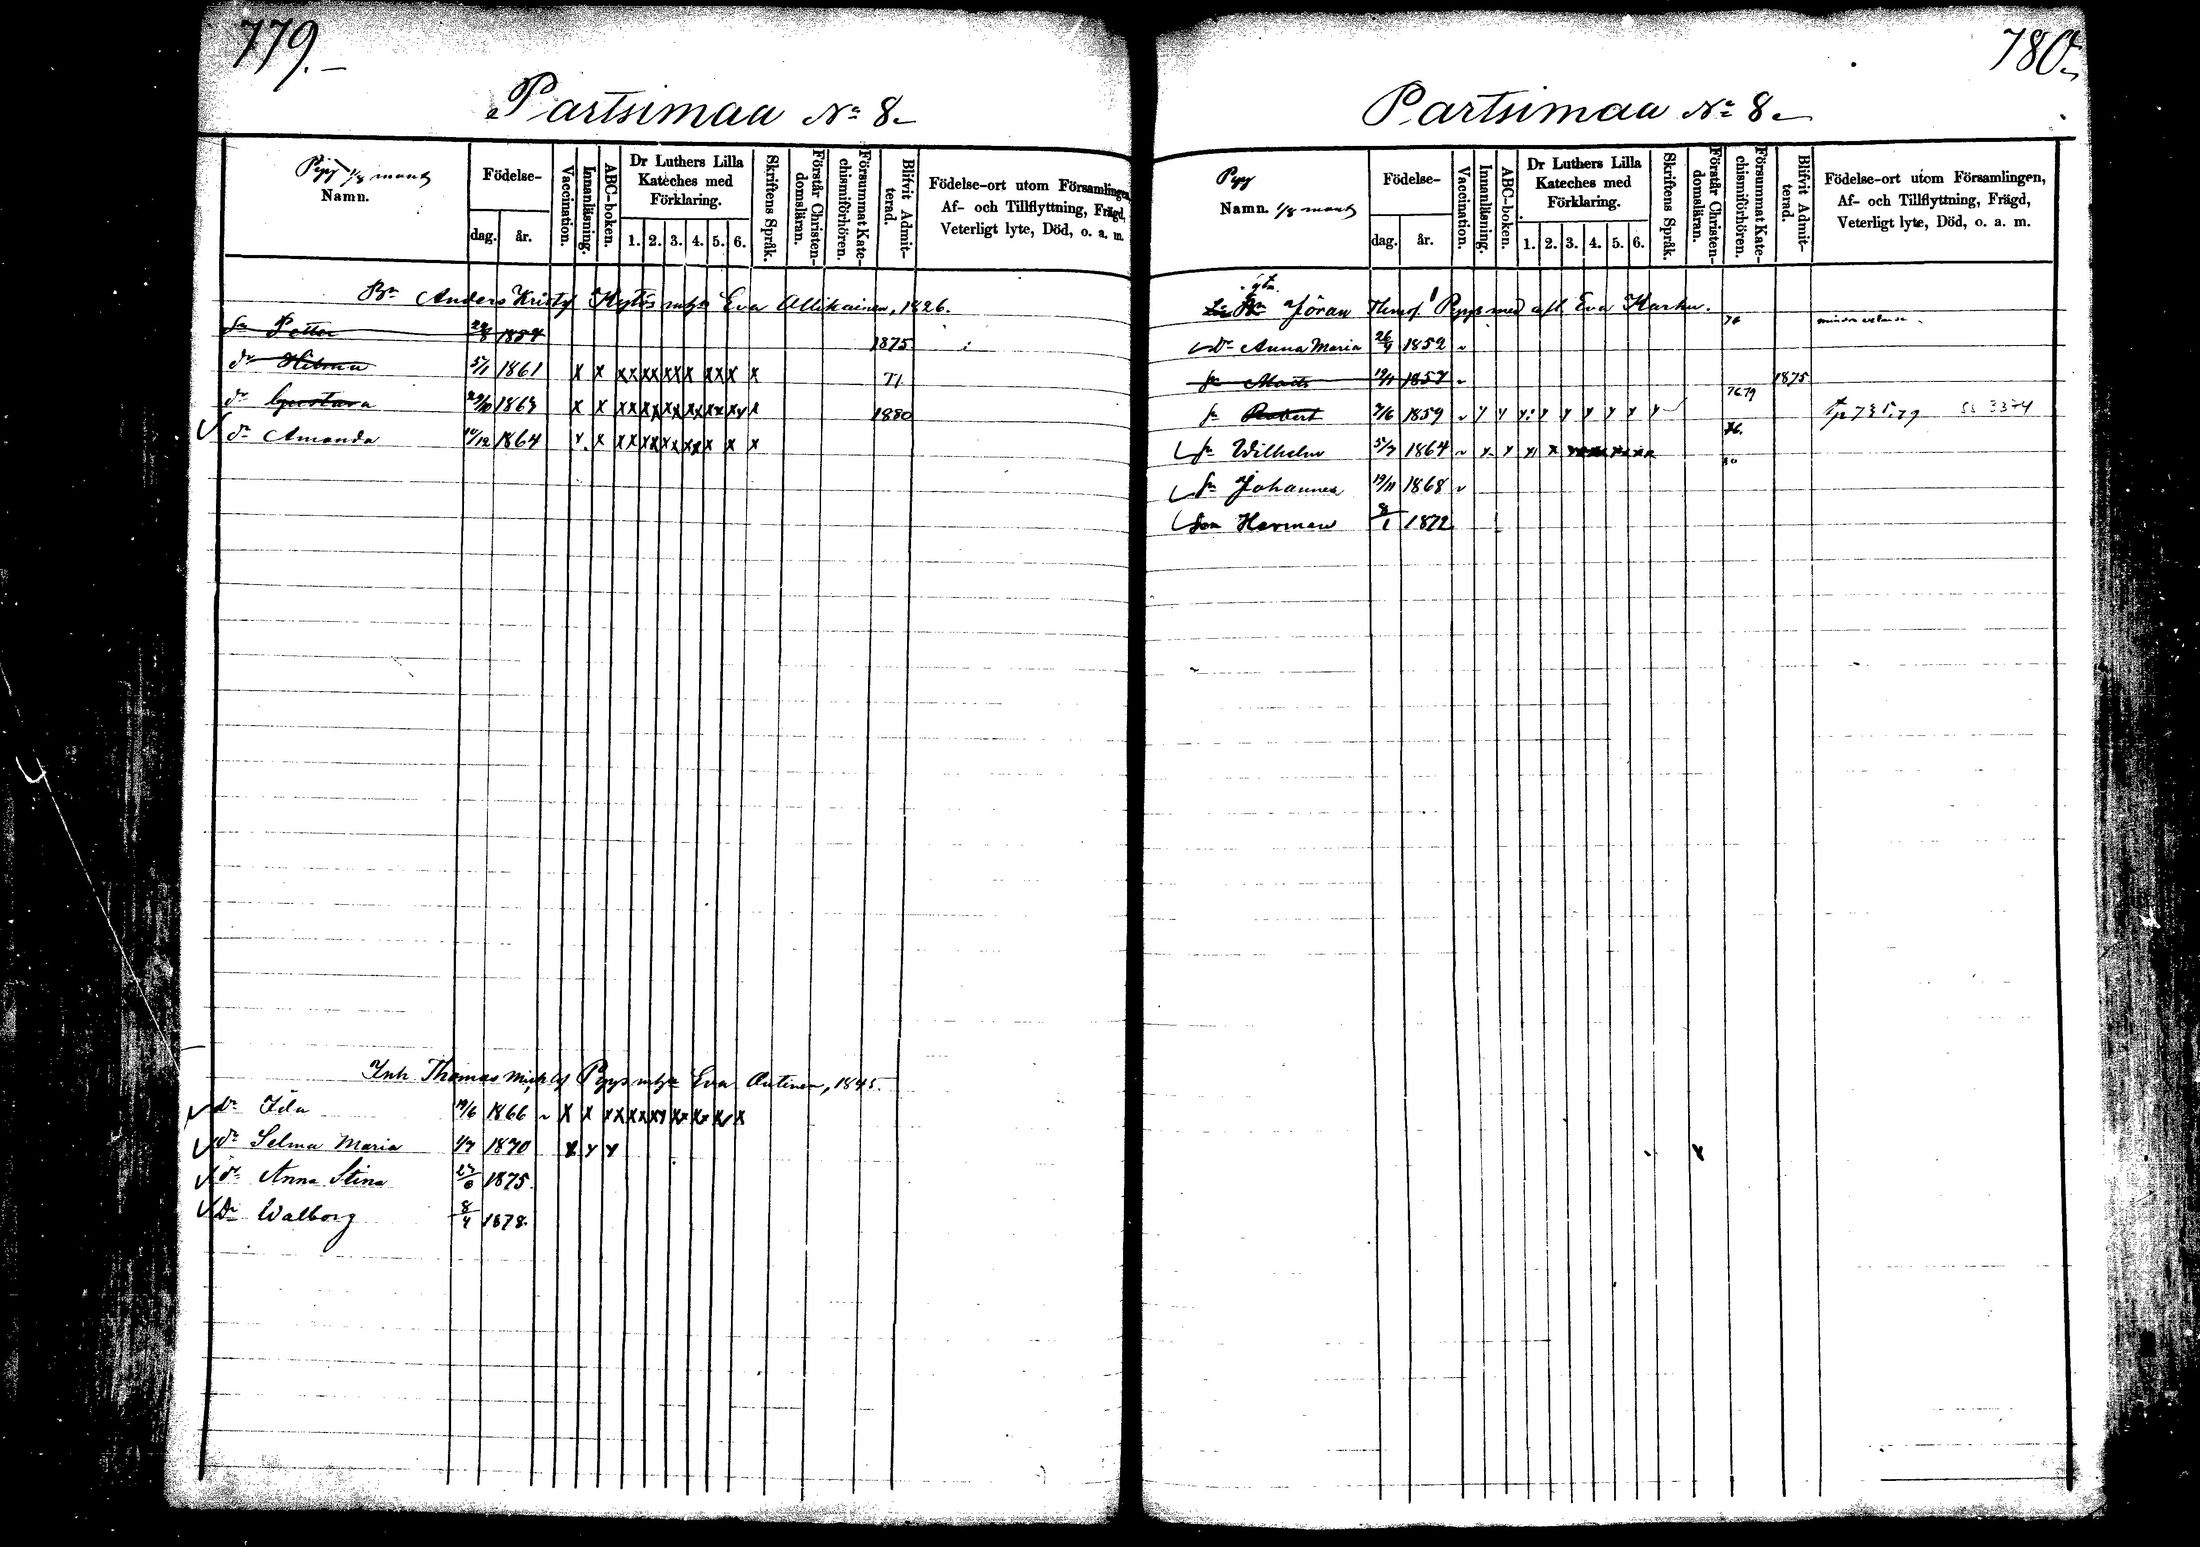 779.
Partsimaa No 8
Pyy 1/8 mant
Namn.
Födelse-
dag.
år.
Vaccination.
Innanläsning.
ABC-boken.
Dr Luthers Lilla
Kateches med
Förklaring.
1. 2. 3. 4. 5. 6.
Skriftens Språk.
Förstår Christen-
domsläran.
Försummat Kate-
chismiförhören.
Blifvit Admit-
terad.
Födelse-ort utom Församlingen,
Af- och Tillflyttning, Frägd,
Veterligt lyte, Död, o. a. m.
Bn Anders Kristf Eva Ollikainen, 1826.
Sn Petter 1854 1875
dr Hilma 5/1 1861 x x x x x x x x x x x x 77
dr Gustava 1863 x x x x x x x x x x x x 1880
dr Amanda 10/12 1864 x x x x x x x x x x x x
Inh Thomas Pyy Eva Autinen, 1845.
dr Ida 19/6 1866 x x x x x x x x x x x
dr Selma Maria 1/7 1870 x x x
dr Anna Stina 1875
Dr Walborg 8/4 1878.
780
Partsimaa No 8
Pyy
Namn. 1/8 mant
Födelse-
dag.
år.
Vaccination.
Innanläsning.
ABC-boken.
Dr Luthers Lilla
Kateches med
Förklaring.
1. 2. 3. 4. 5. 6.
Skriftens Språk.
Förstår Christen-
domsläran.
Försummat Kate-
chismiförhören.
Blifvit Admit-
terad.
Födelse-ort utom Församlingen,
Af- och Tillflyttning, Frägd,
Veterligt lyte, Död, o. a. m.
Jöran Pyy med afl. Eva Karhu. 76
Dr Anna Maria 1852
Sn Mats 1857 1875
Sn Robert 1859 76.79
Sn Wilhelm 5/7 1864 76.
Sn Johannes 19/11 1868 80
Son Herman 8/1 1872